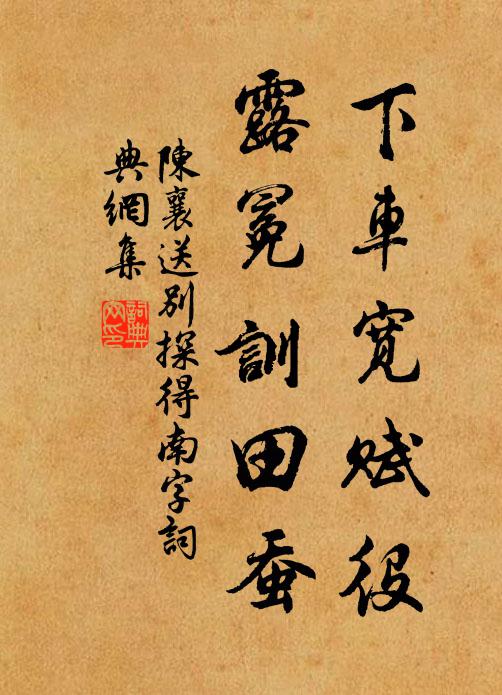 下車寬賦役
露冕訓田蚕
陳襄送別探得南字詞
典網集
詞典网印